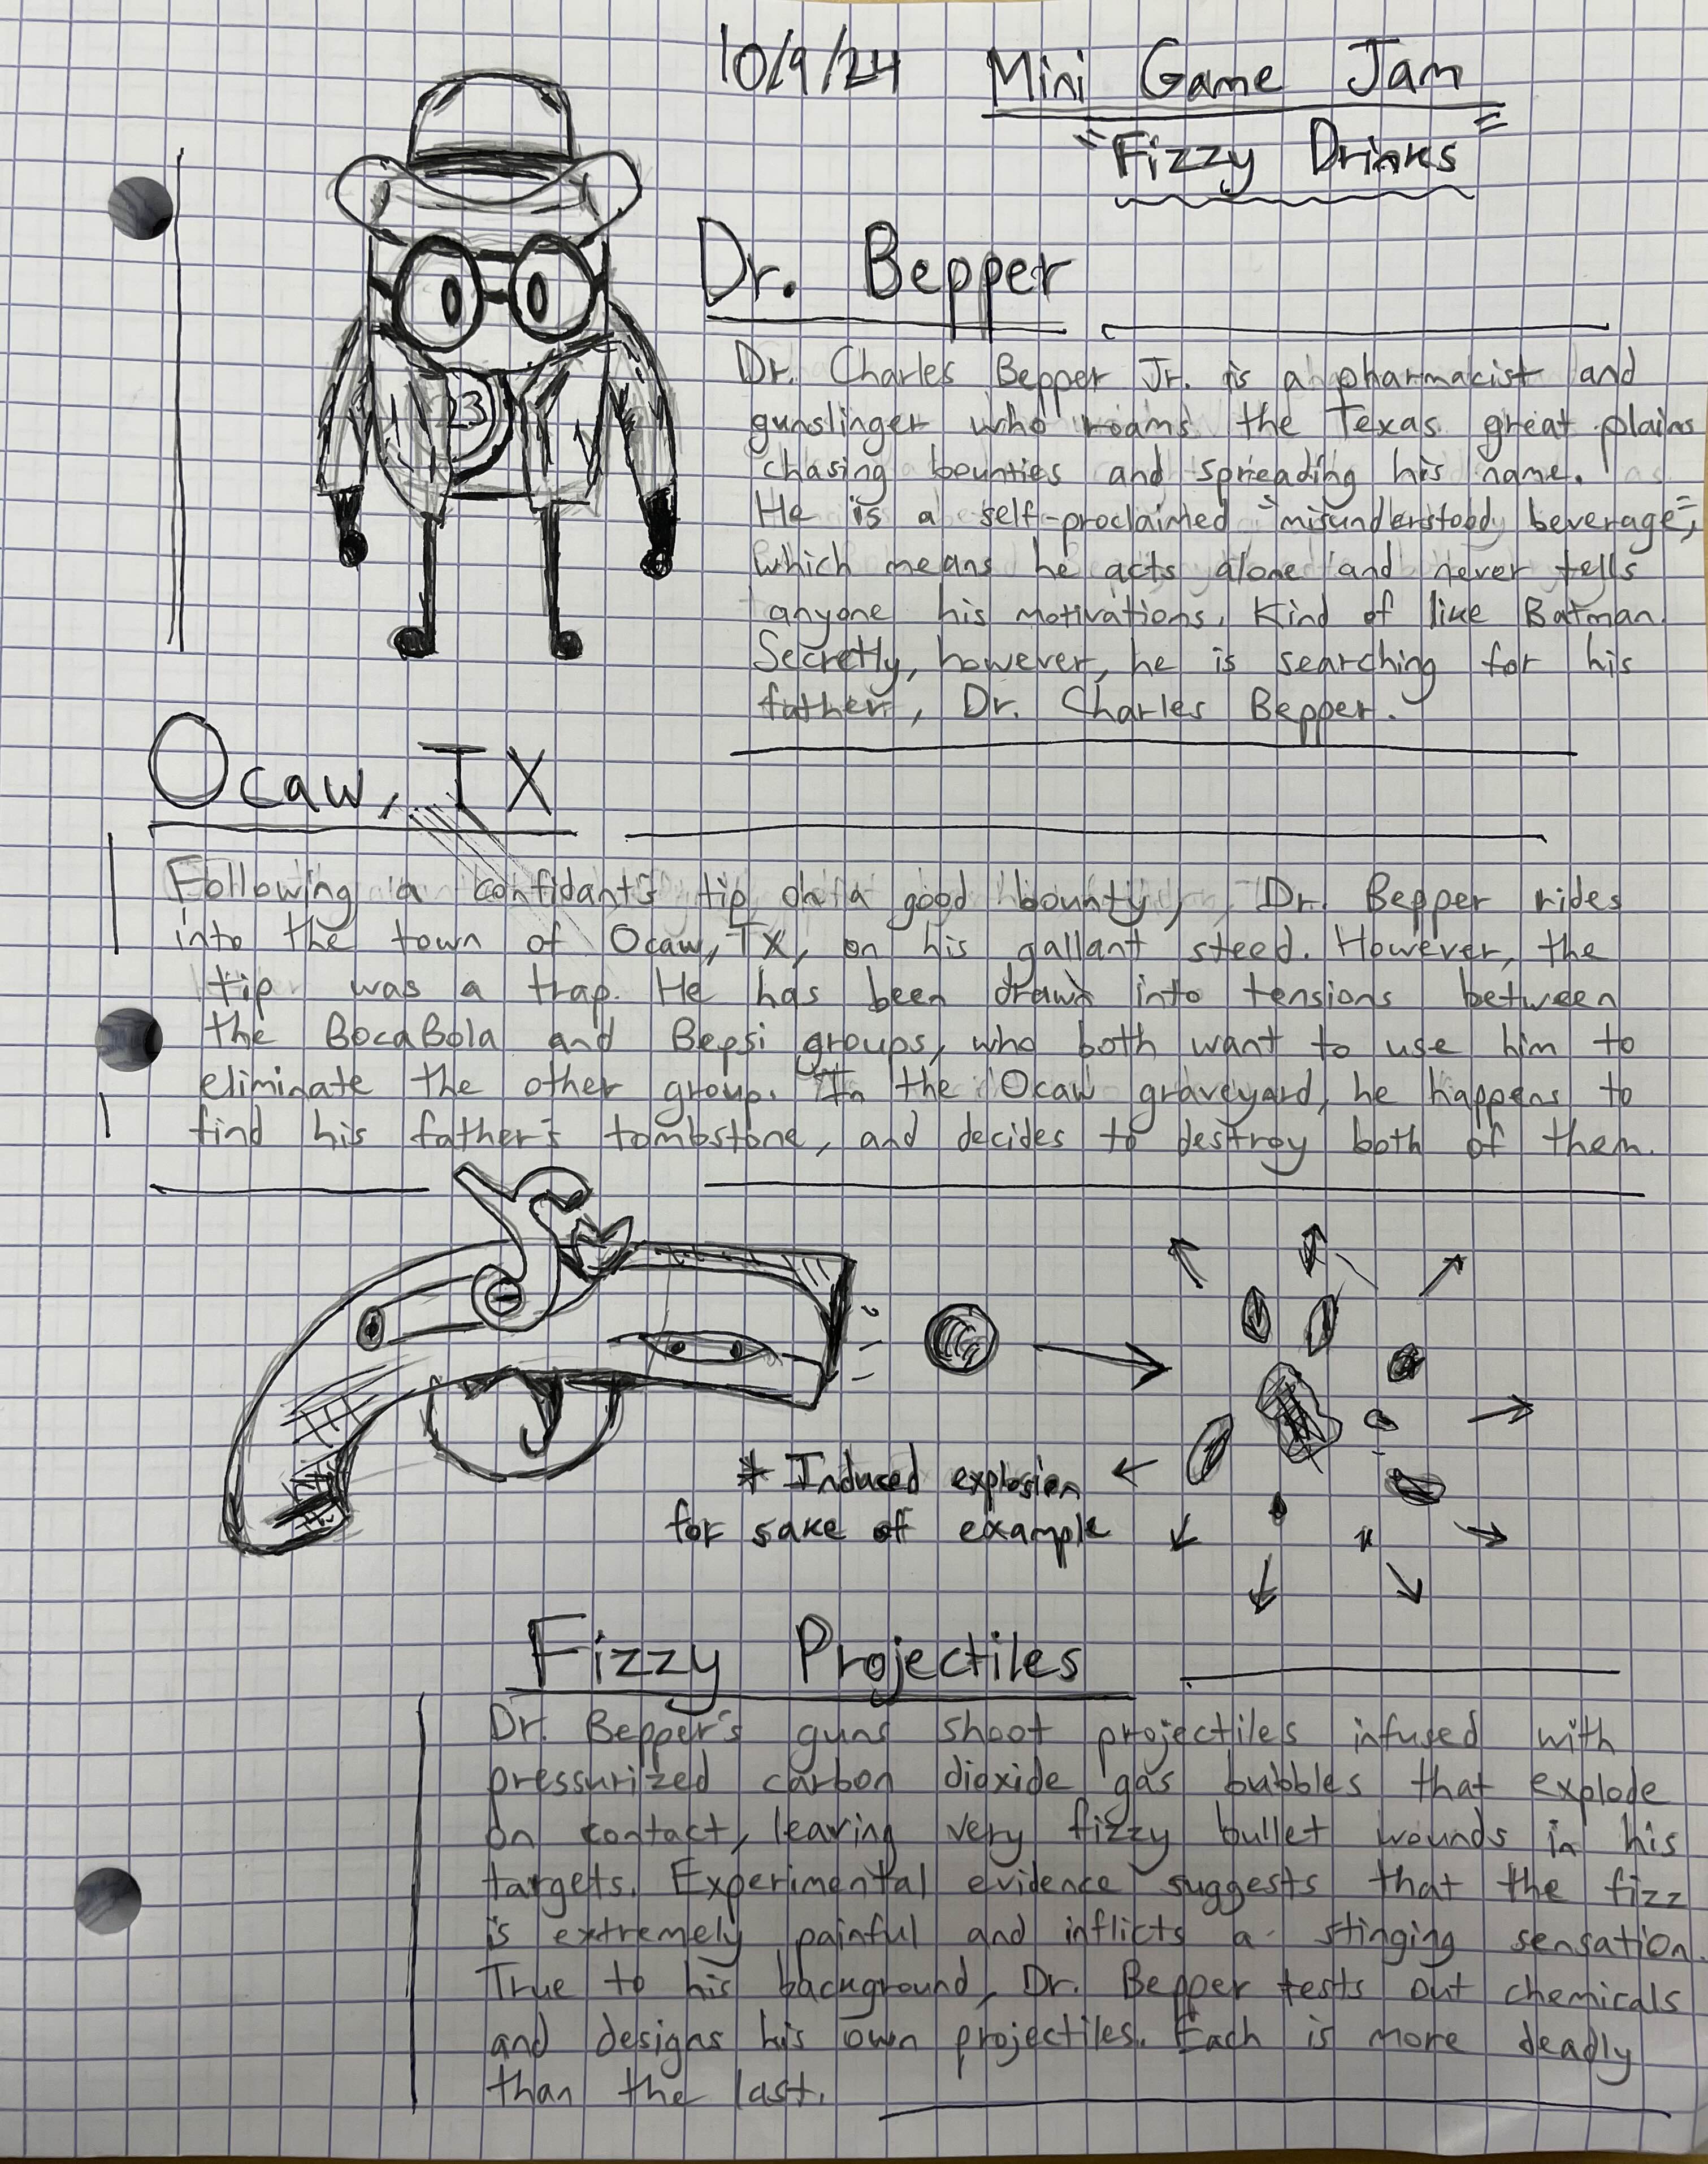 10/9/24 Mini Game Jam
"Fizzy Drinks"
Dr. Bepper
23
Dr. Charles Bepper Jr. is a pharmacist and
gunslinger who roams the Texas great plains
chasing bounties and spreading his name.
He is a self-proclaimed "misunderstood beverage",
which means he acts alone and never tells
anyone his motivations. Kind of like Batman.
Secretly, however, he is searching for his
father, Dr. Charles Bepper.
Ocaw, TX
Following a confidant's tip on a good bounty, Dr. Bepper rides
into the town of Ocaw, TX, on his gallant steed. However, the
tip was a trap. He has been drawn into tensions between
the BocaBola and Bepsi groups, who both want to use him to
eliminate the other group. In the Ocaw graveyard, he happens to
find his father's tombstone, and decides to destroy both of them.
* Induced explosion
for sake of example
Fizzy Projectiles
Dr. Bepper's guns shoot projectiles infused with
pressurized carbon dioxide gas bubbles that explode
on contact, leaving very fizzy bullet wounds in his
targets. Experimental evidence suggests that the fizz
is extremely painful and inflicts a stinging sensation.
True to his background, Dr. Bepper tests out chemicals
and designs his own projectiles. Each is more deadly
than the last.